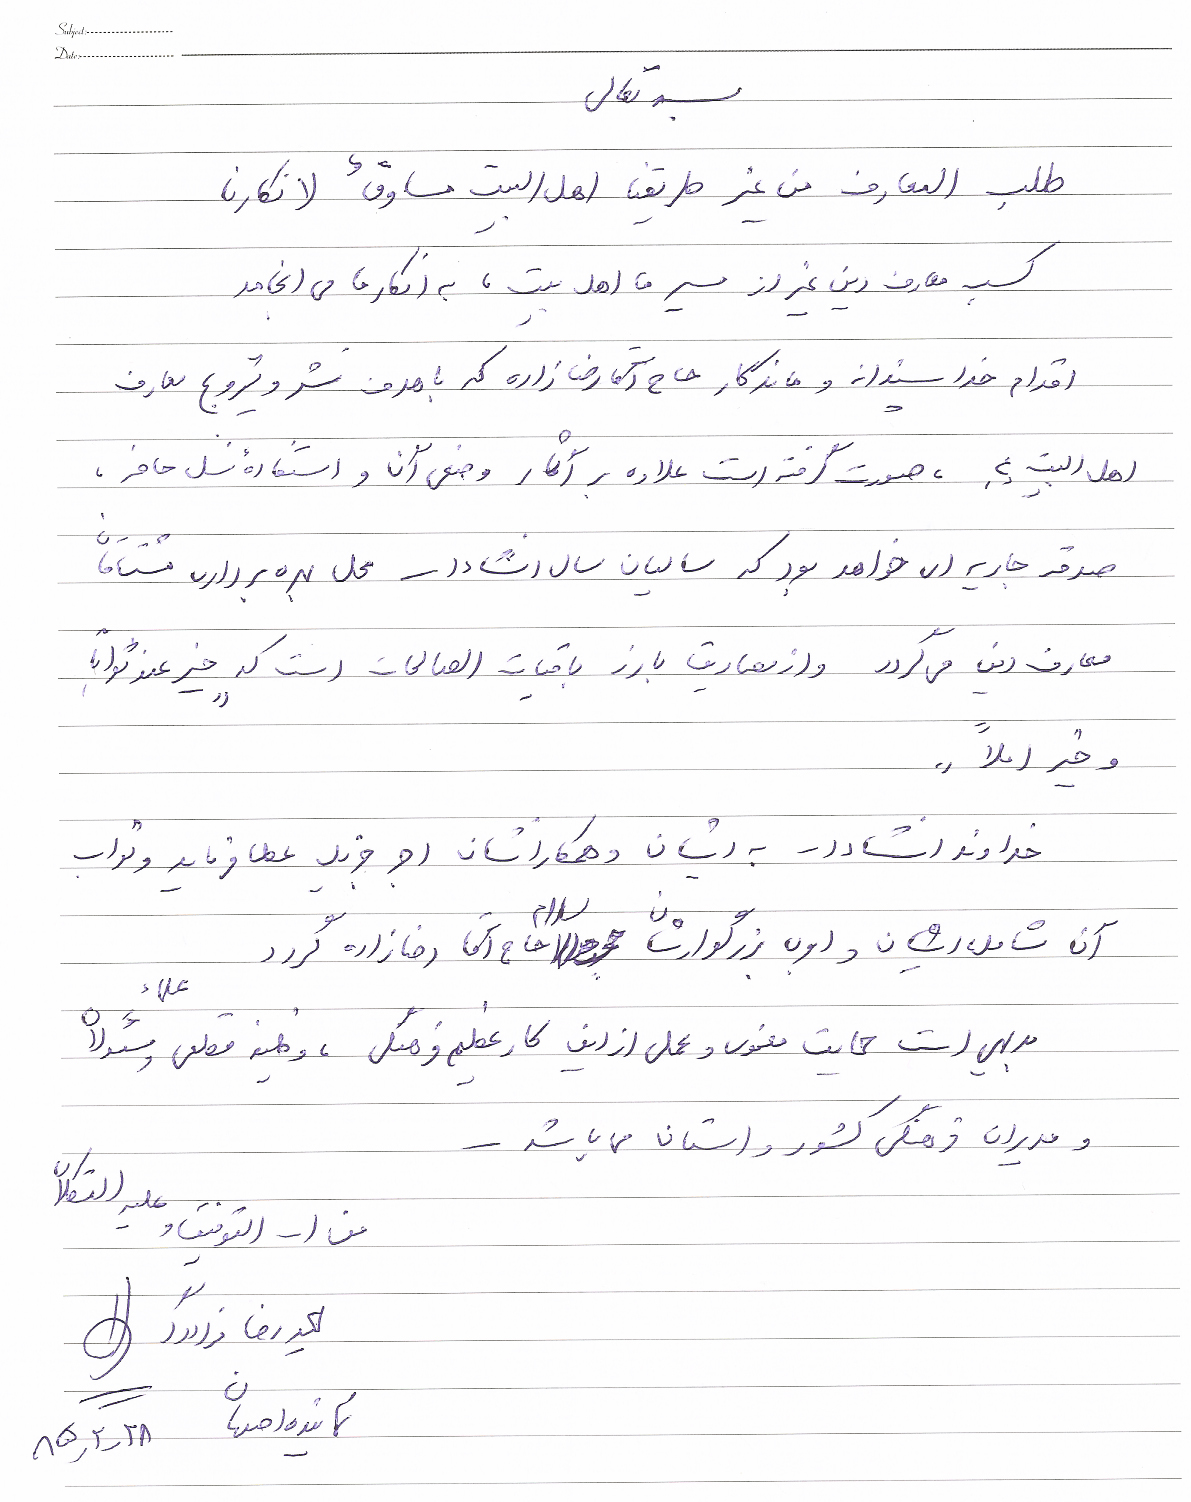 Subject:
Date:
بسمه تعالی
طلب المعارف من غیر طریقنا اهل البیت مساوقٌ لانکارنا
کسب معارف دینی غیر از مسیر ما اهل بیت، به انکار ما می انجامد
اقدام خداپسندانه و ماندگار حاج آقا رضازاده که با هدف نشر و ترویج معارف
اهل البیت ع، صورت گرفته است علاوه بر آثار وضعی آن و استفادهٔ نسل حاضر،
صدقه جاریه ای خواهد بود که سالیان سال انشاءا... محل بهره برداری مشتاقان
معارف دینی می گردد و از مصادیق بارز باقیات الصالحات است که "خیر عند ثواباً
و خیر املاً"
خداوند انشاءا... به ایشان و همکارانشان اجر جزیل عطا فرماید و ثواب
آن شامل ایشان و ابوی بزرگوارشان مرحوم حاج آقا رضازاده گردد
بدیهی است حمایت معنوی و عملی از این کار عظیم فرهنگی، وظیفه قطعی علماء و مسئولان
و مدیران فرهنگی کشور و استان می باشد _
من ا... التوفیق و علیه التکلان
حمیدرضا فولادگر
نماینده اصفهان
۸۵/۲/۲۸